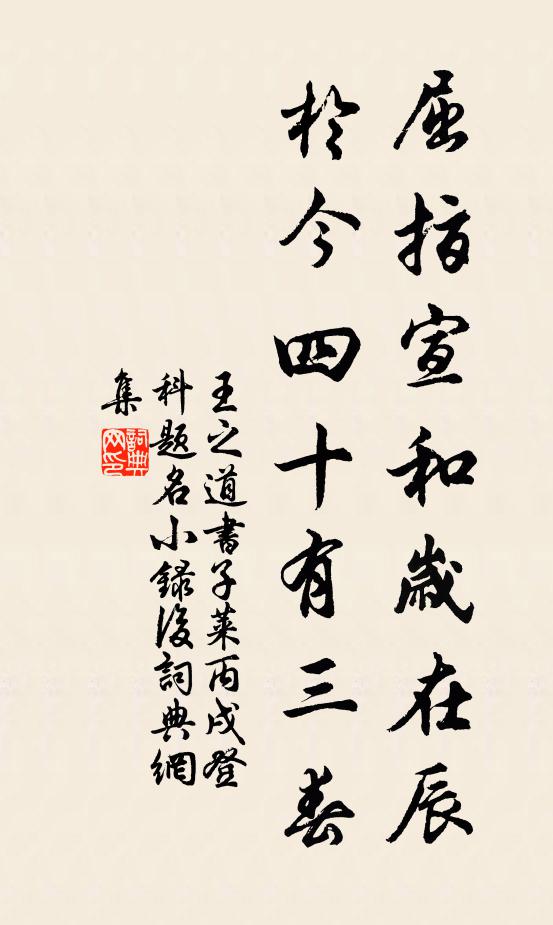 屈指宣和歲在辰
於今四十有三春
王之道書子萊丙戌登
科題名小錄後詞典網
集
詞典
网印